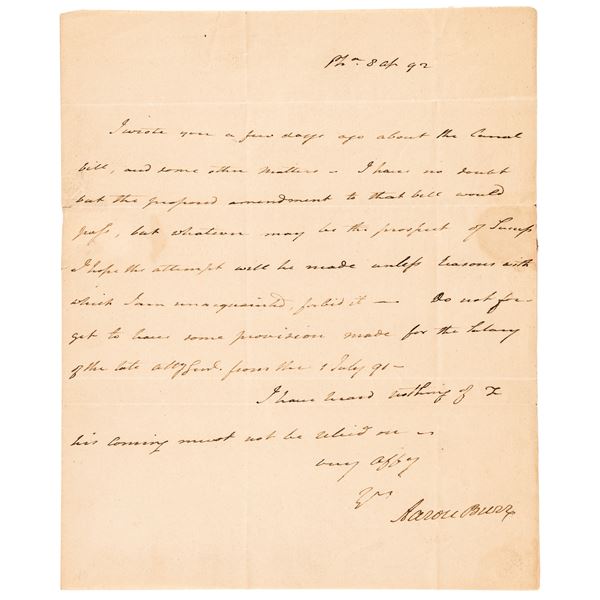 Pha. 8 Ap 92
I wrote you a few days ago about the Canal
bill, and some other matters – I have no doubt
but the proposed amendment to that bill would
pass, but whatever may be the prospect of Success
I hope the attempt will be made unless reasons with
which I am unacquainted, forbid it – Do not for-
get to have some provision made for the Salary
of the late Atty Genl. from the 1 July 91 –
I have heard nothing of
his coming must not be relied on –
very affy
Yrs
Aaron Burr